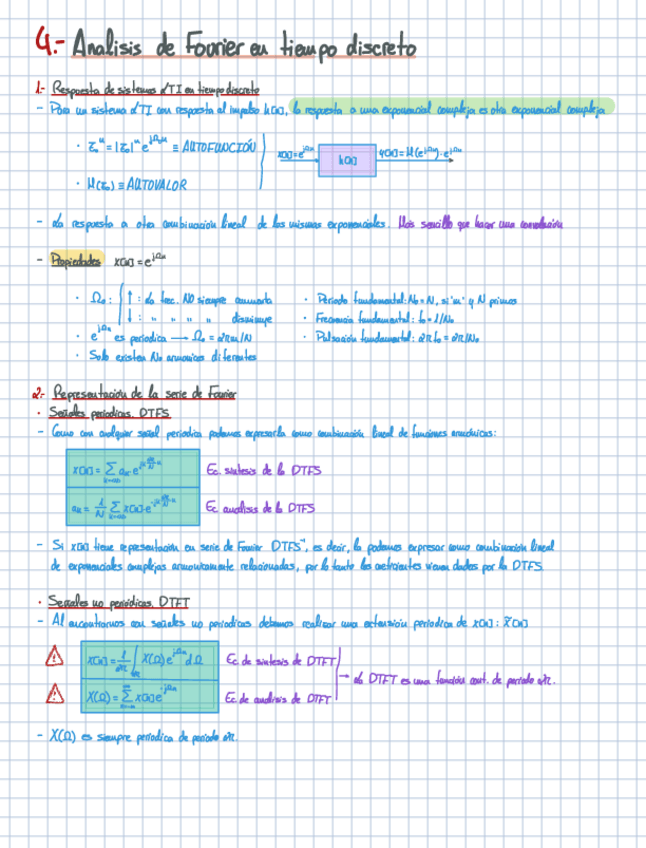 4.- Analisis de Fourier en tiempo discreto
1- Respuesta de sistemas LTI en tiempo discreto
- Para un sistema LTI con respuesta al impulso h[n], la respuesta a una exponencial compleja es otra exponencial compleja
· z₀ⁿ = |z₀|ⁿ e^{jΩ₀n} ≡ AUTOFUNCIÓN
x[n]=e^{jΩn} h[n] y[n]=H(e^{jΩn})·e^{jΩn}
· H(z₀) ≡ AUTOVALOR
- La respuesta a otra combinación lineal de las mismas exponenciales. Más sencillo que hacer una convolución
- Propiedades x[n]=e^{jΩn}
· Ω₀: ↑: La frec. NO siempre aumenta
↓: " " " " disminuye
· e^{jΩn} es periodica → Ω₀ = 2πm/N
· Solo existen N₀ armonicos diferentes
· Periodo fundamental: N₀ = N, si 'm' y N primos
· Frecuencia fundamental: f₀ = 1/N₀
· Pulsación fundamental: 2πf₀ = 2π/N₀
2- Representación de la serie de Fourier
· Señales periodicas. DTFS
- Como con cualquier señal periodica podemos expresarla como combinación lineal de funciones armónicas:
x[n] = Σ aₖ e^{jk 2π/N n} Ec. sintesis de la DTFS
aₖ = 1/N Σ x[n]·e^{-jk 2π/N n} Ec analisis de la DTFS
- Si x[n] tiene representación en serie de Fourier DTFS", es decir, la podemos expresar como combinación lineal
de exponenciales complejas armonicamente relacionadas, por lo tanto los coeficientes vienen dados por la DTFS
· Señales no periódicas. DTFT
- Al encontrarnos con señales no periodicas debemos realizar una extensión periodica de x[n]: x̃[n]
x[n] = 1/2π ∫ X(Ω) e^{jΩn} dΩ Ec de sintesis de DTFT
X(Ω) = Σ x[n] e^{-jΩn} Ec de analisis de DTFT
→ La DTFT es una función cont. de periodo 2π.
- X(Ω) es siempre periodica de periodo 2π.